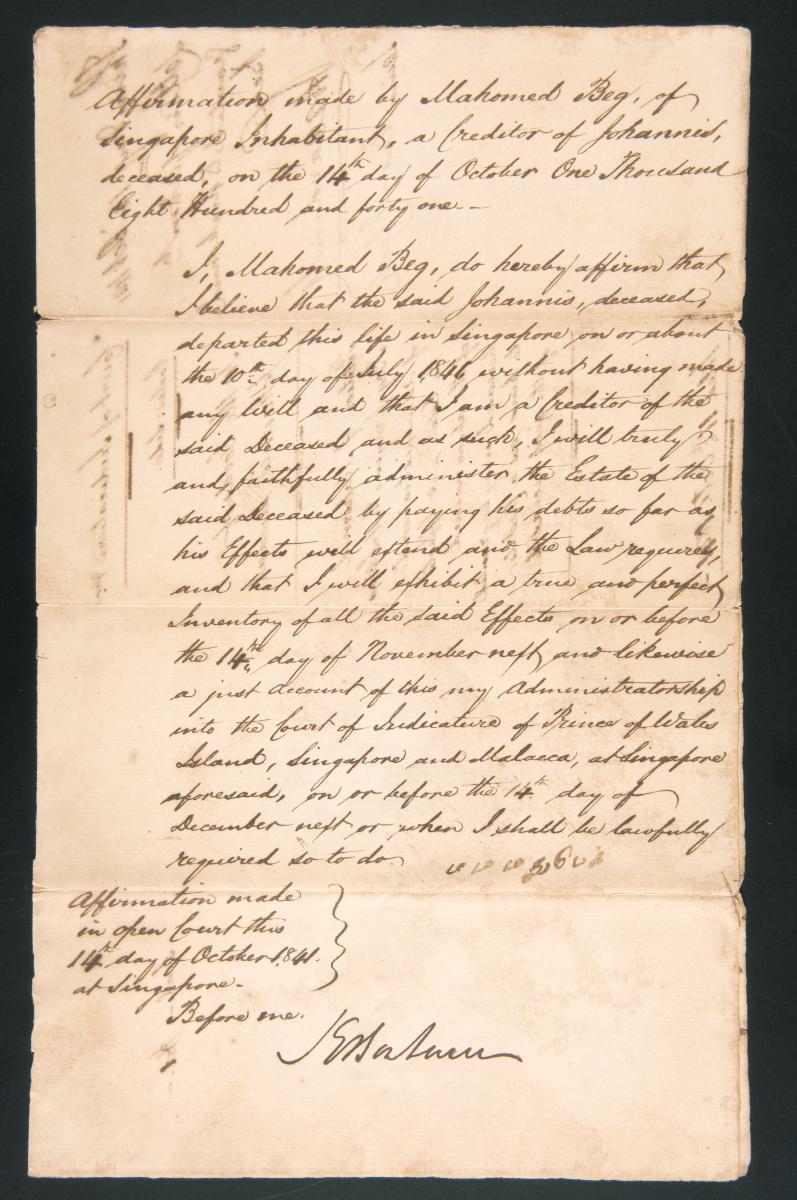 Affirmation made by Mahomed Beg, of
Singapore Inhabitant, a Creditor of Johannis,
deceased, on the 14th day of October One Thousand
Eight Hundred and forty one.
I, Mahomed Beg, do hereby affirm that
I believe that the said Johannis, deceased,
departed this life in Singapore on or about
the 10th day of July 1846 without having made
any Will and that I am a Creditor of the
said Deceased and as such, I will truly
and faithfully administer the Estate of the
said Deceased by paying his debts so far as
his Effects will extend and the Law requires,
and that I will exhibit a true and perfect
Inventory of all the said Effects on or before
the 14th day of November next, and likewise
a just account of this my Administratorship
into the Court of Judicature of Prince of Wales
Island, Singapore and Malacca, at Singapore
aforesaid, on or before the 14th day of
December next or when I shall be lawfully
required so to do.
Affirmation made
in open Court this
14th day of October 1841.
at Singapore.
Before me.